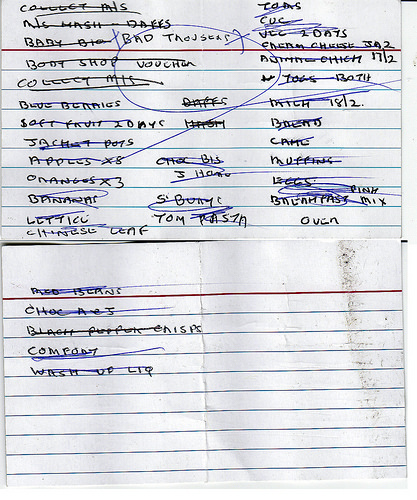 COLLECT M/S
TOMS
M/S MASH - DAFFS
CUC
BABY BIO
BAD TROUSERS
VEG 2 DAYS
CREAM CHEESE JA2
BOOT SHOP VOUCHER
CHICK 17/2
COLLECT M/S
YOGS - BOTH
BLUE BERRIES
DAFFS
MILK 18/2.
SOFT FRUIT 2 DAYS
MASH
BREAD
JACKET POTS
CAKE
APPLES x8
CHOC BIS
MUFFINS
ORANGES x3
J
EGGS
PINK
BANANAS
BREAKFAST MIX
LETTICE
TOM PASTA
OVER
CHINESE LEAF
RED BEANS
CHOC
BLACK PEPPER CRISPS
COMFORT
WASH UP LIQ